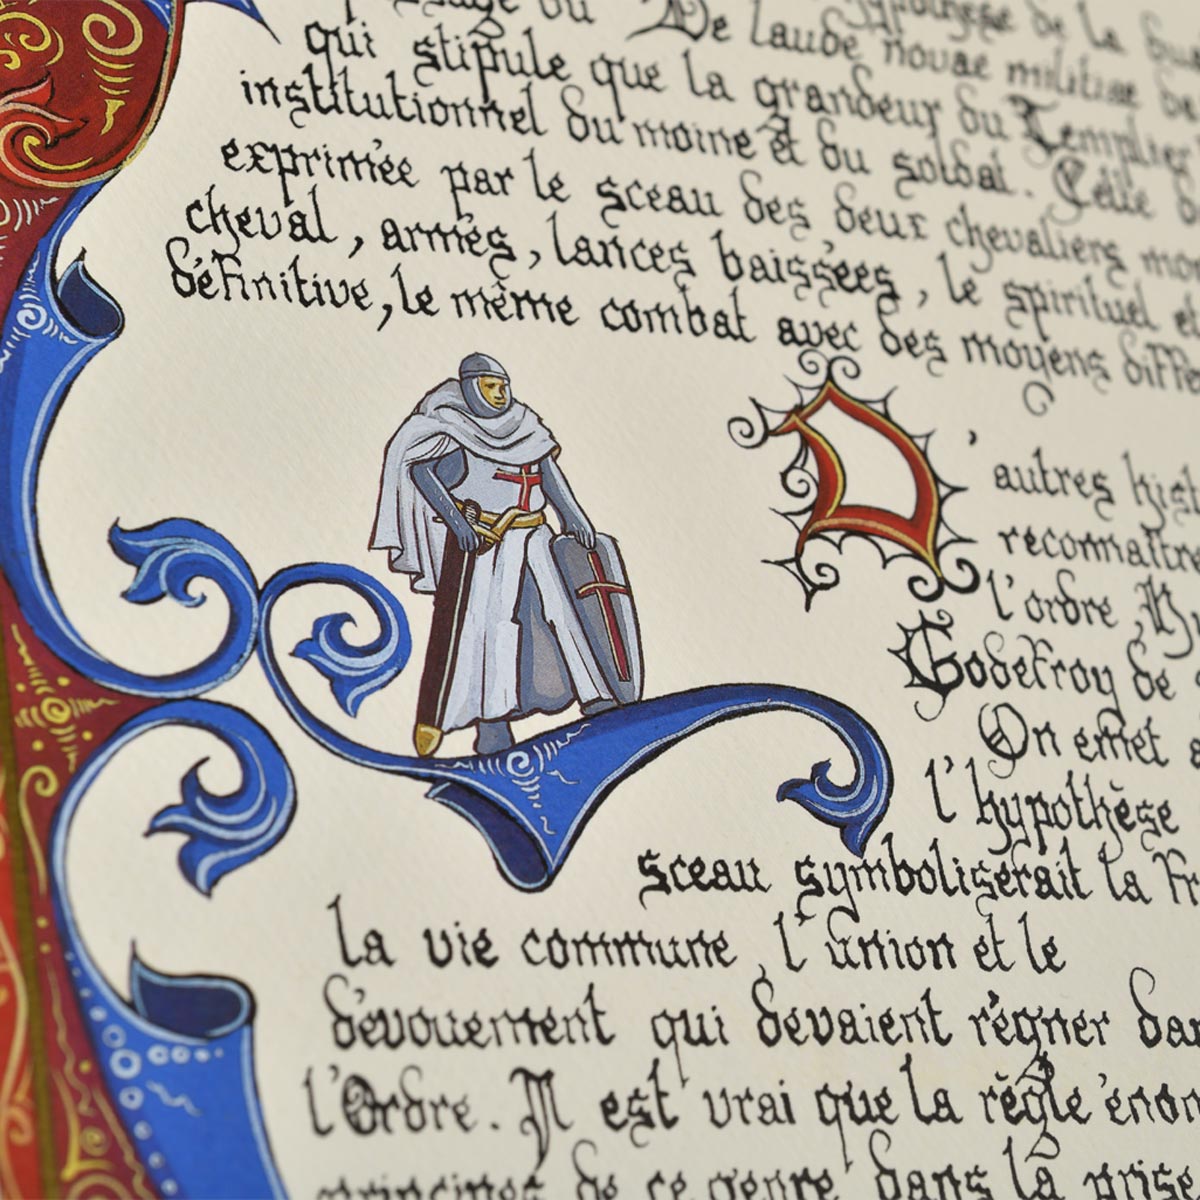 hypothèse de la
passage du De laude novae militiae de
qui stipule que la grandeur du Templier
institutionnel du moine et du soldat. Celle
exprimée par le sceau des deux chevaliers
cheval, armés, lances baissées, le spirituel et
définitive, le même combat avec des moyens
D'autres
reconnaître
l'ordre,
Godefroy de
On émet
l'hypothèse
sceau symboliserait la
la vie commune, l'union et le
dévouement qui devaient régner
l'Ordre. Il est vrai que la règle
principes de ce genre dans la prise